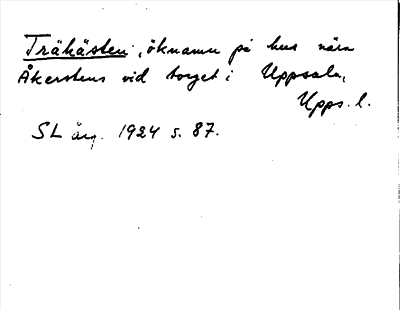 Träkästen, öknamn på hus nära
Åkerstens vid torget i Uppsala,
Upps. l.
SL årg. 1924 s. 87.